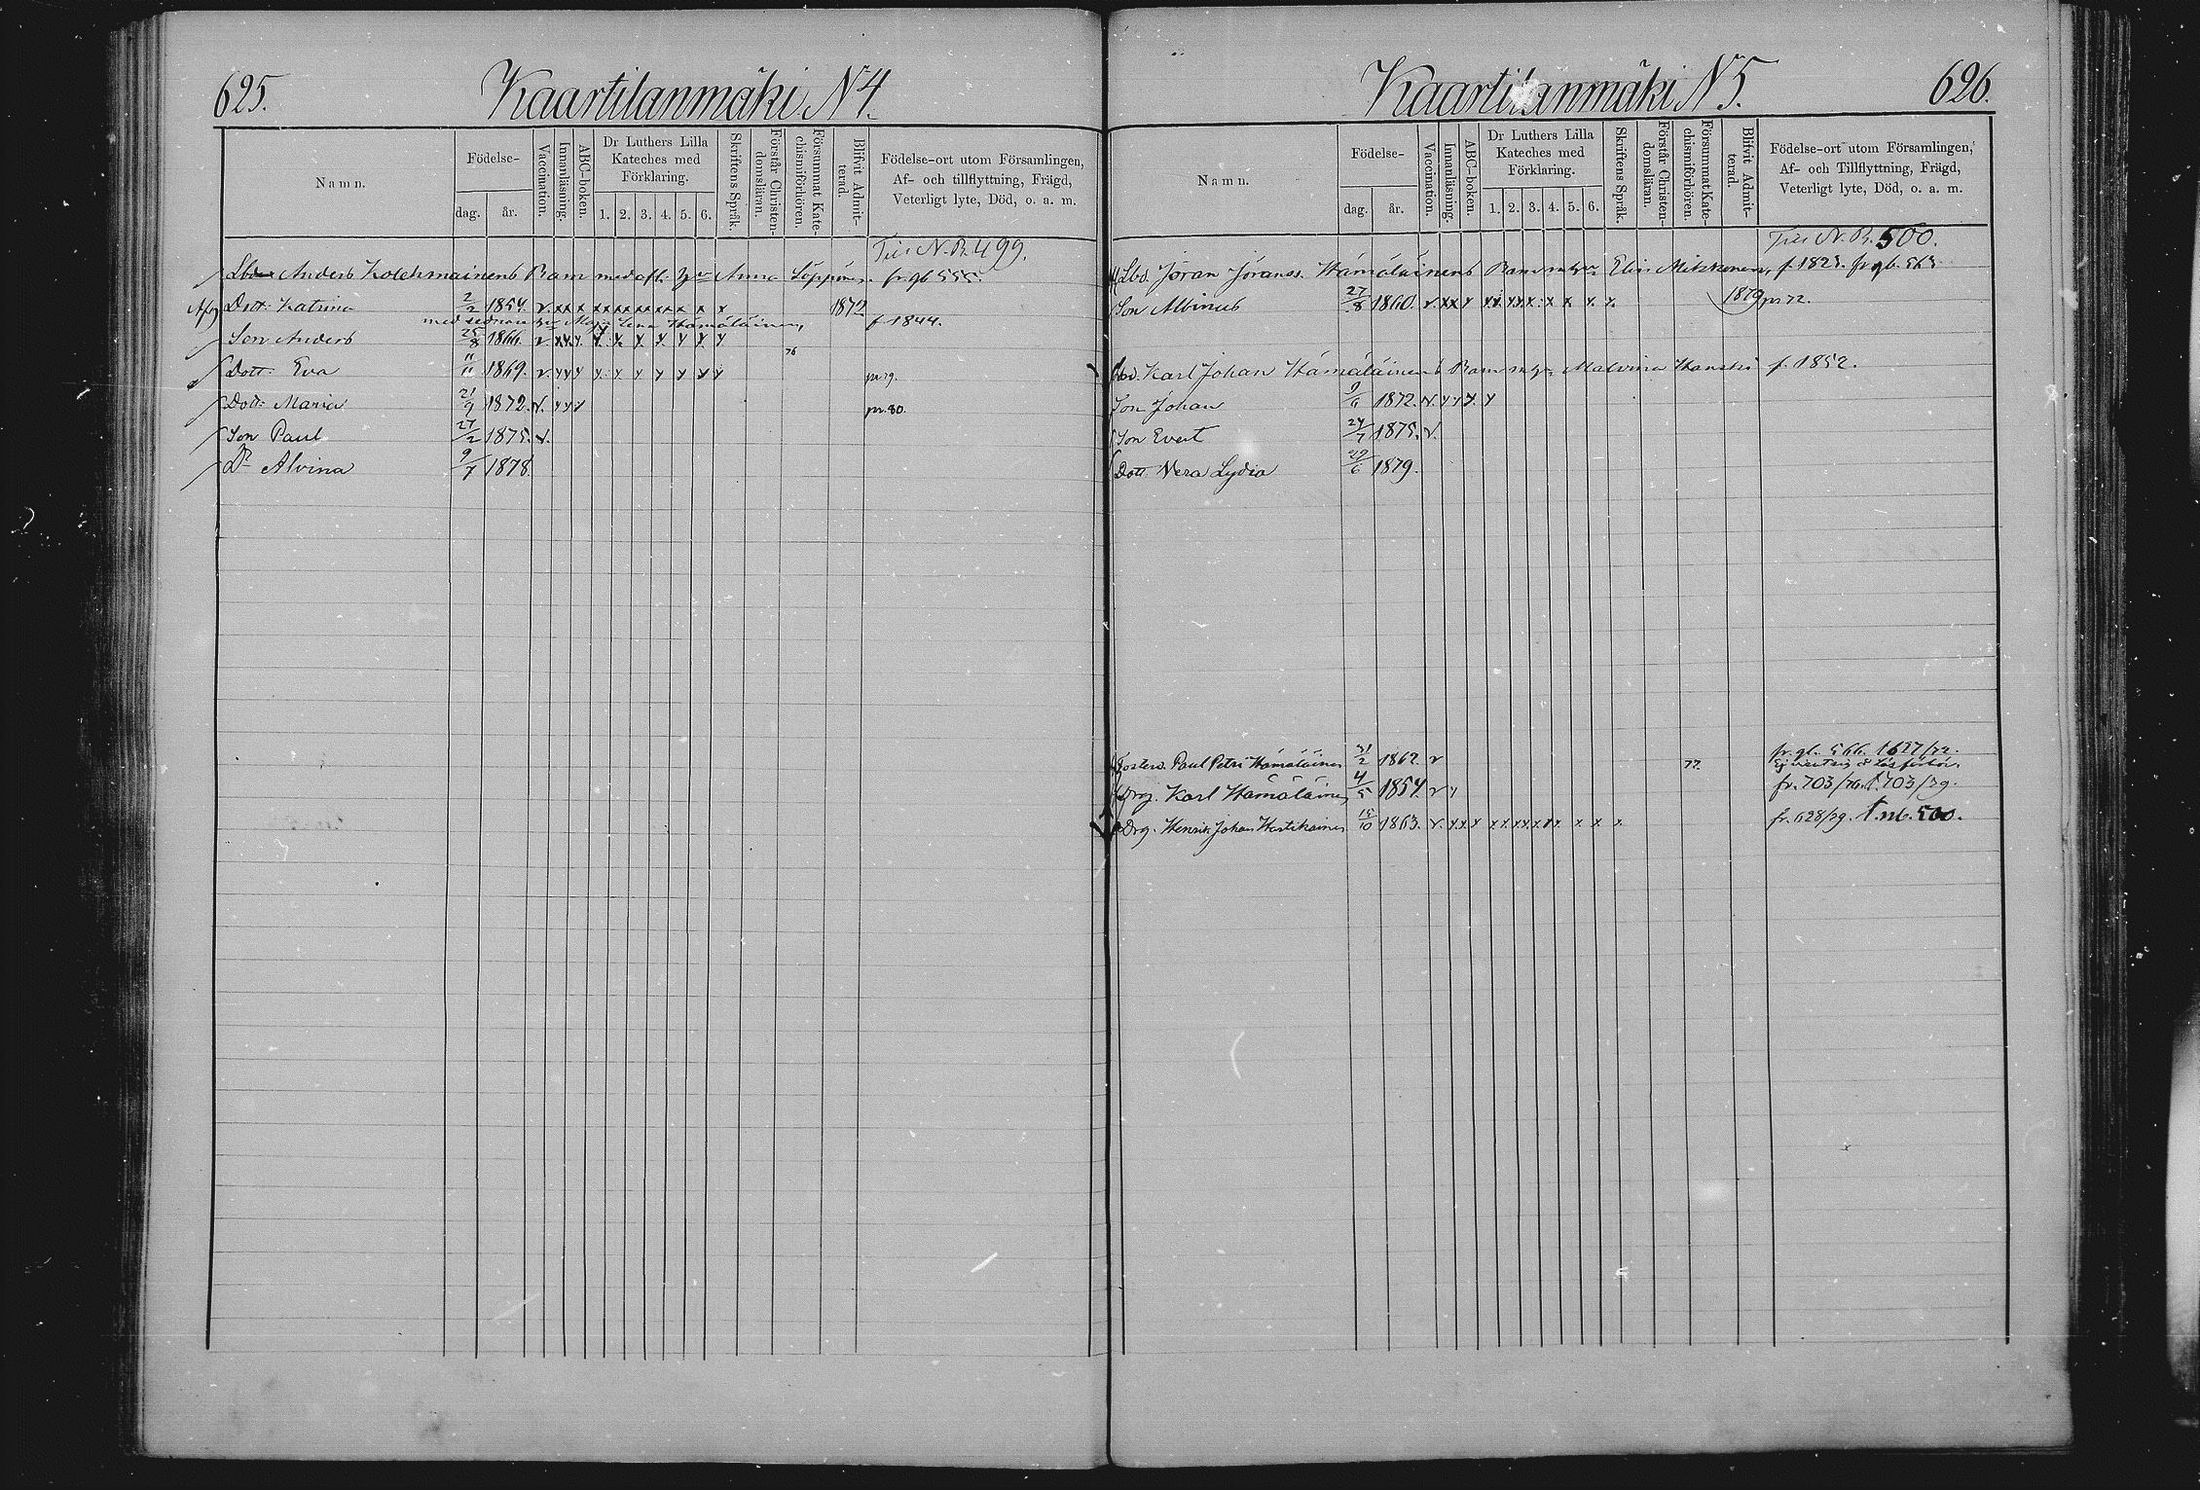 625.
Kaartilanmäki N 4.
Namn.
Födelse-
dag. år.
Vaccination.
Innanläsning.
ABC-boken.
Dr Luthers Lilla
Kateches med
Förklaring.
1. 2. 3. 4. 5. 6.
Skriftens Språk.
Förstår Christen-
domsläran.
Försummat Kate-
chismiförhören.
Blifvit Admit-
terad.
Födelse-ort utom Församlingen,
Af- och tillflyttning, Frägd,
Veterligt lyte, Död, o. a. m.
N.B. 499.
Anders Kolehmainens Barn med afl. Anna Löppönen. fr. gb 555.
Dott. Katrina 2/2 1854. v. x x x x x x x x x x x x x 1872
med sednare Maja Lena Hämäläinen, f. 1844.
Son Anders 25/8 1866. v. x x x x x x x x x x
76
Dott. Eva 11/11 1869. v. x x x x x x x x x x pr 79.
Dott. Maria 21/9 1872. v. x x x pr. 80.
Son Paul 27/2 1875. v.
Dr Alvina 9/7 1878.
626.
Kaartilanmäki N 5.
Namn.
Födelse-
dag. år.
Vaccination.
Innanläsning.
ABC-boken.
Dr Luthers Lilla
Kateches med
Förklaring.
1. 2. 3. 4. 5. 6.
Skriftens Språk.
Förstår Christen-
domsläran.
Försummat Kate-
chismiförhören.
Blifvit Admit-
terad.
Födelse-ort utom Församlingen,
Af- och Tillflyttning, Frägd,
Veterligt lyte, Död, o. a. m.
N. B. 500.
Lbd. Jöran Jöranss. Hämäläinens Barn Elin Miskunen, f. 1823. fr gb. 563
Son Albinus 27/8 1860. v. x x x x x x x x x x x x 1879 pr 72.
Lbd. Karl Johan Hämäläinens Barn Malvina f. 1852.
Son Johan 9/6 1872. v. x x x x
Son Evert 24/7 1875. v.
Dott. Vera Lydia 29/6 1879.
Fosters. Paul Petri Hämäläinen 1862. v 77. fr. gl. 566. t 627/72.
Drg. Karl Hämäläinen 4/5 1854. v x fr. 703/76. t. 703/79.
Drg. Henrik Johan 15/10 1863. v. x x x x x x x x x x x x x fr. 628/79. t. nb. 500.